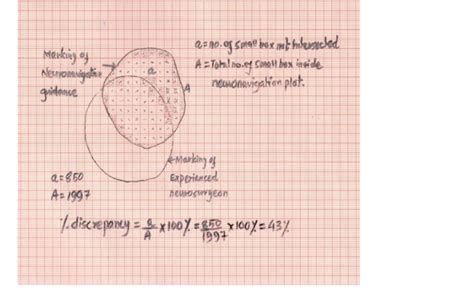 Marking of
Neuronavigation
guidance
a
A
a = no. of small box not intersected
A = Total no. of small box inside
neuronavigation plot.
Marking of
Experienced
neurosurgeon
a = 850
A = 1997
% discrepancy = a/A x 100% = 850/1997 x 100% = 43%